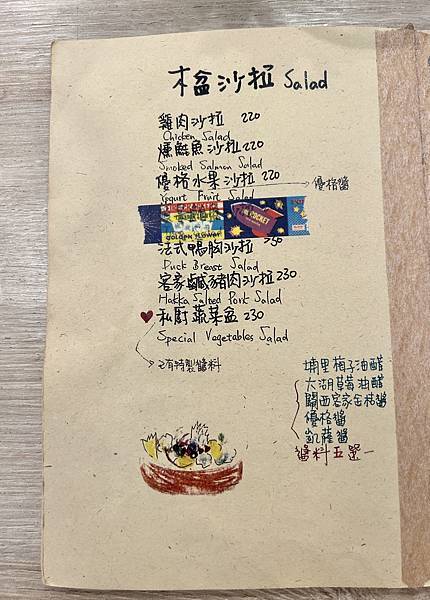 木盆沙拉 Salad
雞肉沙拉 220
Chicken Salad
燻鮭魚沙拉 220
Smoked Salmon Salad
優格水果沙拉 220
優格醬
Yogurt Fruit Salad
GOLDEN FLOWER
POCKET
法式鴨胸沙拉 250
Duck Breast Salad
客家鹹豬肉沙拉 230
Hakka Salted Pork Salad
私廚蔬菜盆 230
Special Vegetables Salad
已有特製醬料
埔里梅子油醋
大湖草莓油醋
關西客家金桔醬
優格醬
凱薩醬
醬料五選一